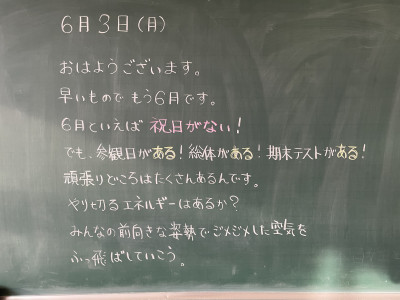 6月3日(月)
おはようございます。
早いもので もう6月です。
6月といえば 祝日がない!
でも、参観日がある!総体がある!期末テストがある!
頑張りどころはたくさんあるんです。
やり切るエネルギーはあるか?
みんなの前向きな姿勢でジメジメした空気を
ふっ飛ばしていこう。